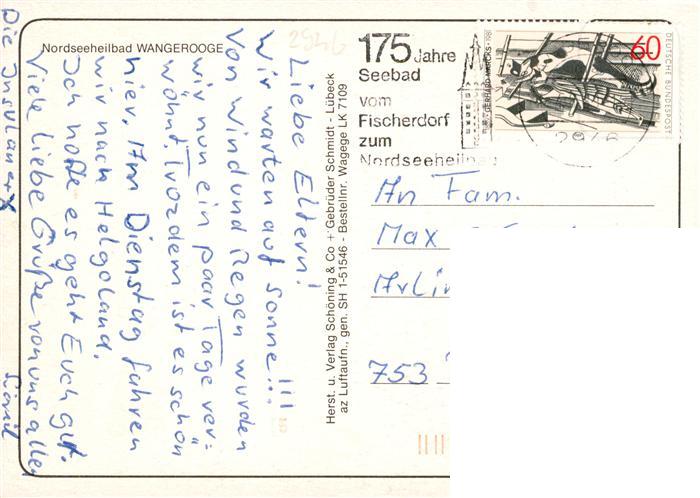 Nordseeheilbad WANGEROOGE
2946
Liebe Eltern!
Wir warten auf Sonne!!!...
Von Wind und Regen wurden
wir nun ein paar Tage ver=
wöhnt, trozdem ist es schön
hier. Am Dienstag fahren
wir nach Helgoland.
Ich hoffe es geht Euch gut.
Viele liebe Grüße von uns allen
Die Insulaner
Herst. u. Verlag Schöning & Co + Gebrüder Schmidt - Lübeck
az Luftaufn., gen. SH 1-51546 - Bestellnr. Wagege LK 7109
175 Jahre
Seebad
vom
Fischerdorf
zum
Nordseeheilbad
60
DEUTSCHE BUNDESPOST
GERHARD MARCKS 1981
2946
An Fam.
Max
753